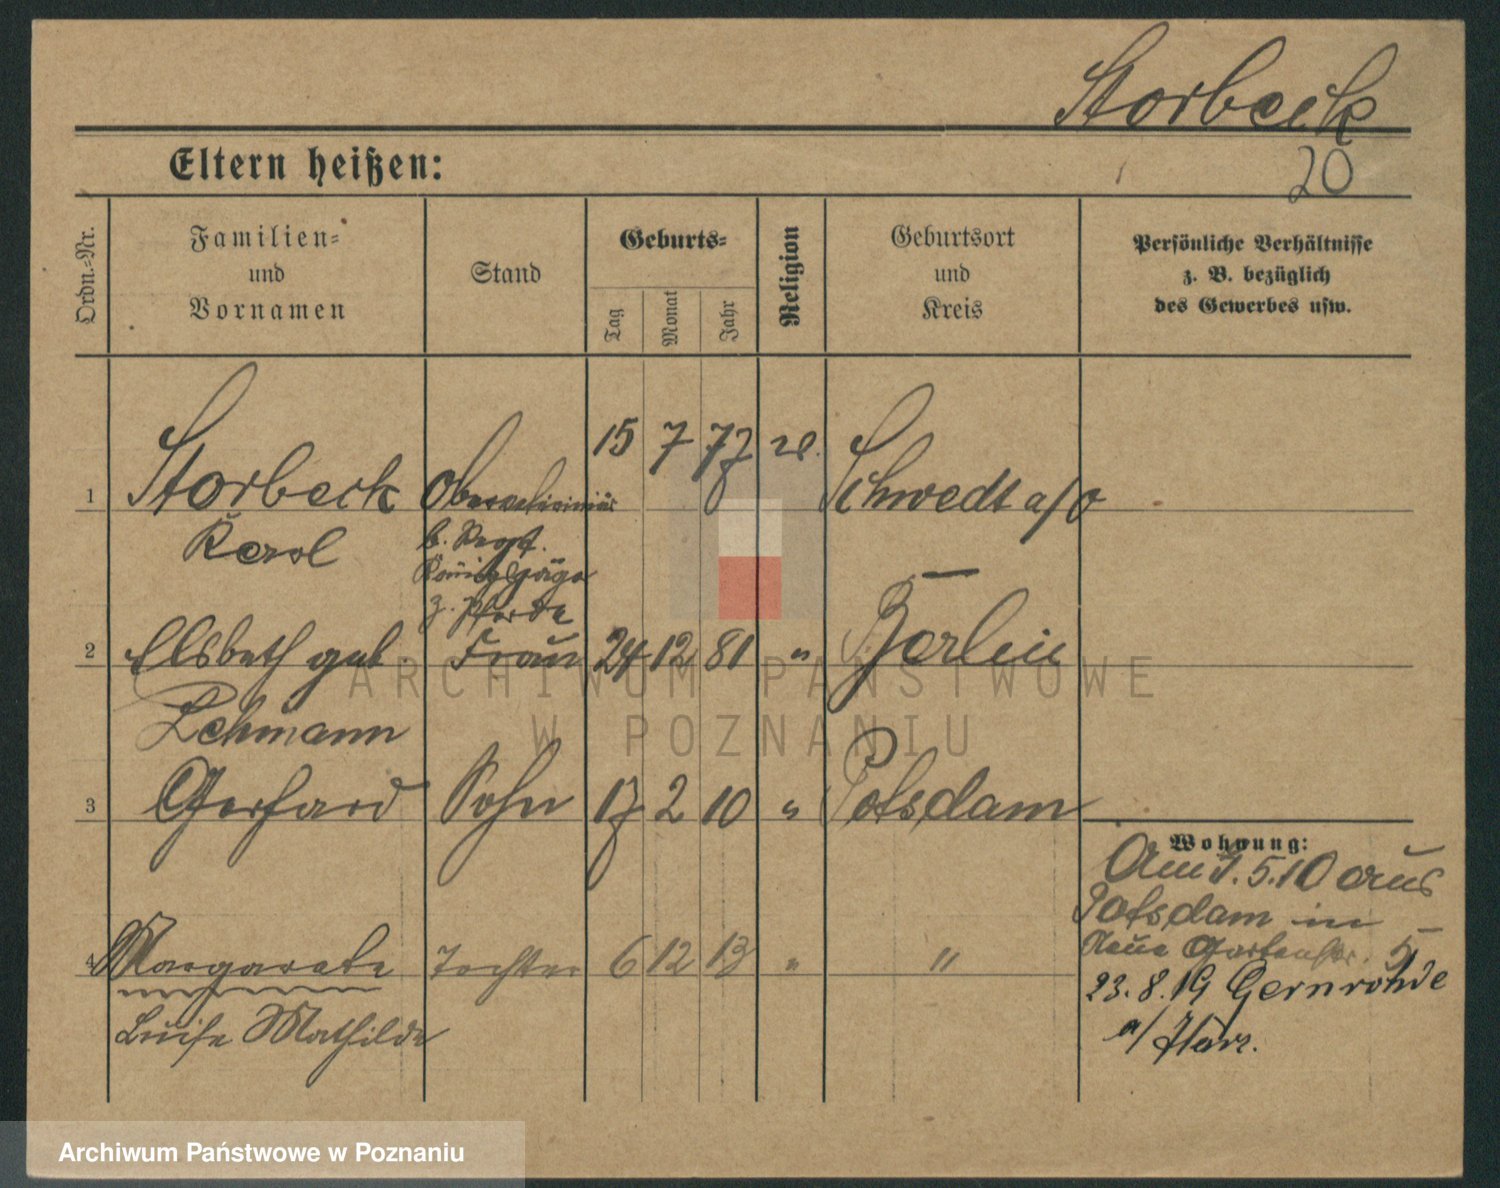 Storbeck
Eltern heißen:
20
Ordn.-Nr.
Familien-
und
Vornamen
Stand
Geburts-
Tag
Monat
Jahr
Religion
Geburtsort
und
Kreis
Persönliche Verhältnisse
z. B. bezüglich
des Gewerbes usw.
1 Storbeck 15 7 77 Schwedt a/O
Karl
b. Regt.
Königsjäger
z. Pferde
2 Elsbeth geb. Frau 24 12 81 " Berlin
Lehmann
3 Gerhard Sohn 17 2 10 " Potsdam
Wohnung:
Am 1.5.10 aus
Potsdam in
Neue Gartenstr. 5
4 Margarete Tochter 6 12 13 " "
23.8.19 Gernrohde
Luise Mathilde
a/Harz.
ARCHIWUM PAŃSTWOWE
W POZNANIU
Archiwum Państwowe w Poznaniu